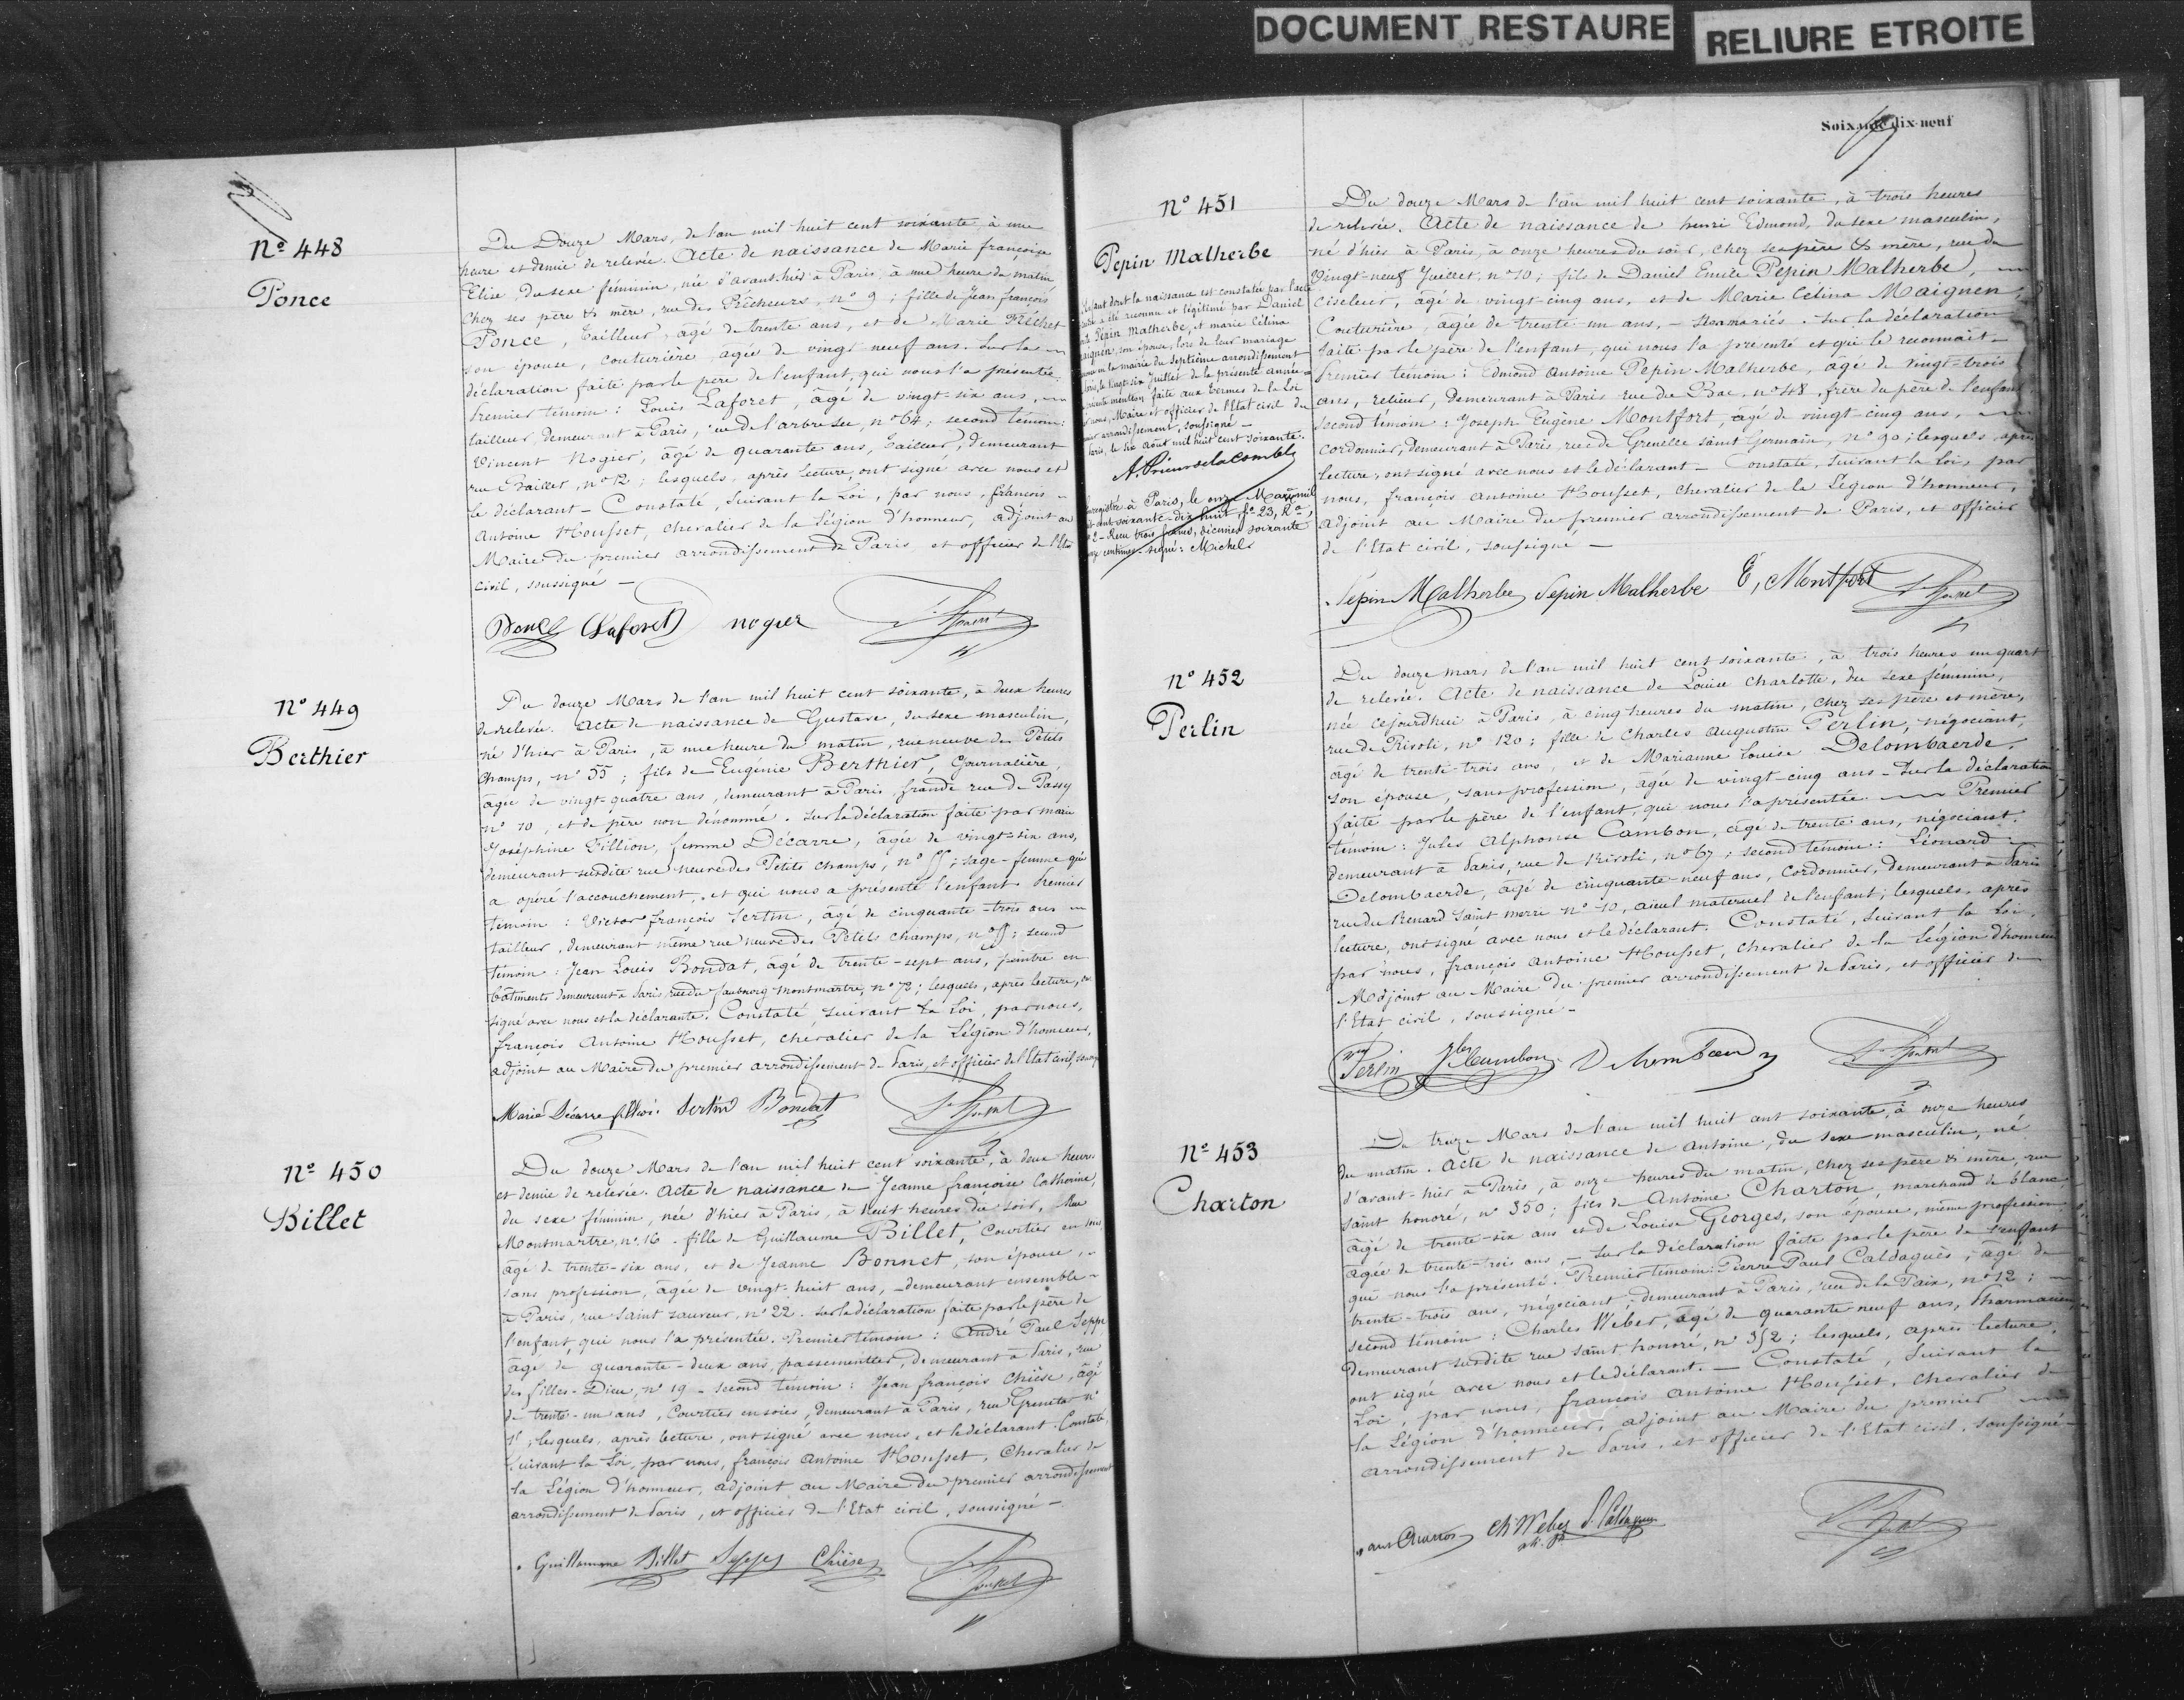 DOCUMENT RESTAURE
RELIURE ETROITE
Nº 448
Ponce
Du Douze Mars, de l'an mil huit cent soixante, à une
heure et demie de relevée. Acte de naissance de Marie françoise
Elise, du sexe féminin, née d'avant-hier à Paris, à une heure du matin
chez ses père & mère, rue des Prêcheurs, nº 9; fille de Jean françois
Ponce, tailleur, âgé de trente ans, et de Marie Fréchet
son épouse, couturière, âgée de vingt neuf ans. Sur la
déclaration faite par le père de l'enfant, qui nous l'a présentée.
Premier témoin: Louis Laforet, âgé de vingt-six ans,
tailleur, demeurant à Paris, rue de l'arbre sec, nº 64; second témoin:
Vincent Nogier, âgé de quarante ans, tailleur, demeurant
rue Baillet, nº 12; lesquels, après lecture, ont signé avec nous et
le déclarant - Constaté, suivant la Loi, par nous, françois
Antoine Housset, chevalier de la Légion d'honneur, adjoint au
Maire du premier arrondissement de Paris, et officier de l'Etat
civil, soussigné —
Ponce Laforet nogier
Nº 449
Berthier
Du douze Mars de l'an mil huit cent soixante, à deux heures
de relevée. Acte de naissance de Gustave, du sexe masculin,
né d'hier à Paris, à une heure du matin, rue neuve des Petits
Champs, nº 55; fils de Eugénie Berthier, Journalière,
âgée de vingt-quatre ans, demeurant à Paris, grande rue de Passy
nº 10, et de père non dénommé. Sur la déclaration faite par marie
Joséphine Fillion, femme Décarre, âgée de vingt-six ans,
demeurant susdite rue neuve des Petits champs, nº 55; sage-femme qui
a opéré l'accouchement, et qui nous a présenté l'enfant. Premier
témoin: Victor françois Sertin, âgé de cinquante-trois ans
tailleur, demeurant même rue neuve des Petits champs, nº 55; second
témoin: Jean Louis Bondat, âgé de trente-sept ans, peintre en
bâtiments demeurant à Paris, rue du faubourg Montmartre, nº 72; lesquels, après lecture, ont
signé avec nous et la déclarante. Constaté, suivant la Loi, par nous,
françois Antoine Housset, chevalier de la Légion d'honneur,
adjoint au Maire du premier arrondissement de Paris, et officier de l'Etat civil,
Marie Décarre fillion Sertin Bondat
Nº 450
Billet
Du douze Mars de l'an mil huit cent soixante, à deux heures
et demie de relevée. Acte de naissance de Jeanne françoise Catherine,
du sexe féminin, née d'hier à Paris, à huit heures du soir, Rue
Montmartre, nº 16. fille de Guillaume Billet, Courtier en
âgé de trente-six ans, et de Jeanne Bonnet, son épouse,
sans profession, âgée de vingt-huit ans, demeurant ensemble
à Paris, rue Saint Sauveur, nº 22. Sur la déclaration faite par le père de
l'enfant, qui nous l'a présentée. Premier témoin: André Paul Seppe
âgé de quarante-deux ans, passementier, demeurant à Paris, rue
des filles-Dieu, nº 19 - second témoin: Jean françois Chièse, âgé
de trente-un ans, Courtier en soies, demeurant à Paris, rue Greneta nº
lesquels, après lecture, ont signé avec nous, et le déclarant. Constaté,
Suivant la Loi, par nous, françois Antoine Housset, Chevalier de
la Légion d'honneur, adjoint au Maire du premier arrondissement
arrondissement de Paris, et officier de l'Etat civil, soussigné -
Guillaume Billet Seppe Chièse
Soixante-dix-neuf
Nº 451
Pepin Malherbe
L'enfant dont la naissance est constatée par l'acte
a été reconnu et légitimé par Daniel
Pepin Malherbe, et marie Célina
Maignen, son épouse, lors de leur mariage
la mairie du septième arrondissement
Paris, le vingt-six Juillet de la présente année
mention faite aux termes de la Loi
nous, Maire et officier de l'Etat civil du
arrondissement, soussigné -
Paris, le six Août mil huit cent soixante.
Enregistré à Paris, le onze mil
cent soixante-dix huit, fº 23, Rº,
Recu trois francs, décimes soixante
centimes. signé: Michel
Du douze Mars de l'an mil huit cent soixante, à trois heures
de relevée. Acte de naissance de henri Edmond, du sexe masculin,
né d'hier à Paris, à onze heures du soir, chez ses père & mère, rue du
Vingt-neuf Juillet, nº 10; fils de Daniel Emile Pepin Malherbe,
Ciseleur, âgé de vingt-cinq ans, et de Marie Célina Maignen
Couturière, âgée de trente un ans, - non mariés. Sur la déclaration
faite par le père de l'enfant, qui nous l'a présenté et qui le reconnait -
Premier témoin: Edmond Antoine Pepin Malherbe, âgé de Vingt-trois
ans, relieur, demeurant à Paris rue du Bac, nº 48, frère du père de l'enfant
Second témoin: Joseph Eugène Montfort, âgé de vingt-cinq ans,
cordonnier, demeurant à Paris, rue de Grenelle saint Germain, nº 90; lesquels, après
lecture, ont signé avec nous et le déclarant - Constaté, suivant la Loi, par
nous, françois Antoine Housset, chevalier de la Légion d'honneur,
adjoint au Maire du premier arrondissement de Paris, et officier
de l'Etat civil, soussigné —
Pepin Malherbe Pepin Malherbe E, Montfort
Nº 452
Perlin
Du douze mars de l'an mil huit cent soixante, à trois heures un quart
de relevée. Acte de naissance de Louise Charlotte, du sexe féminin,
née cejourd'hui à Paris, à cinq heures du matin, chez ses père et mère,
rue de Rivoli, nº 120; fille de Charles Augustin Perlin, négociant,
âgé de trente-trois ans, et de Marianne Louise Delombaerde,
son épouse, sans profession, âgée de vingt-cinq ans - Sur la déclaration
faite par le père de l'enfant, qui nous l'a présentée. Premier
témoin: Jules Alphonse Cambon, âgé de trente ans, négociant,
demeurant à Paris, rue de Rivoli, nº 67; second témoin: Léonard
Delombaerde, âgé de cinquante-neuf ans, cordonnier, demeurant à Paris
rue du Renard Saint Merri nº 10, aïeul maternel de l'enfant; lesquels, après
lecture, ont signé avec nous et le déclarant. Constaté, suivant la Loi,
par nous, françois Antoine Housset, chevalier de la Légion d'honneur
Adjoint au Maire du premier arrondissement de Paris, et officier de
l'Etat civil, soussigné -
Perlin Cambon
Nº 453
Charton
Du treize Mars de l'an mil huit cent soixante, à onze heures
du matin. Acte de naissance de Antoine, du sexe masculin, né
d'avant-hier à Paris, à onze heures du matin, chez ses père & mère, rue
saint honoré, nº 350; fils de Antoine Charton, marchand de blanc
âgé de trente-six ans et de Louise Georges, son épouse, même profession
âgée de trente-trois ans, - Sur la déclaration faite par le père de l'enfant
qui nous l'a présenté. Premier témoin: Pierre Paul Caldaguès, âgé de
trente-trois ans, négociant, demeurant à Paris, rue de la Paix, nº 12;
second témoin: Charles Weber, âgé de quarante neuf ans, Pharmacien
demeurant susdite rue saint honoré, nº 352; lesquels, après lecture,
ont signé avec nous et le déclarant. — Constaté, Suivant la
Loi, par nous, françois Antoine Housset, chevalier de
la Légion d'honneur, adjoint au Maire du premier
arrondissement de Paris, et officier de l'Etat civil, soussigné -
Ch. Weber